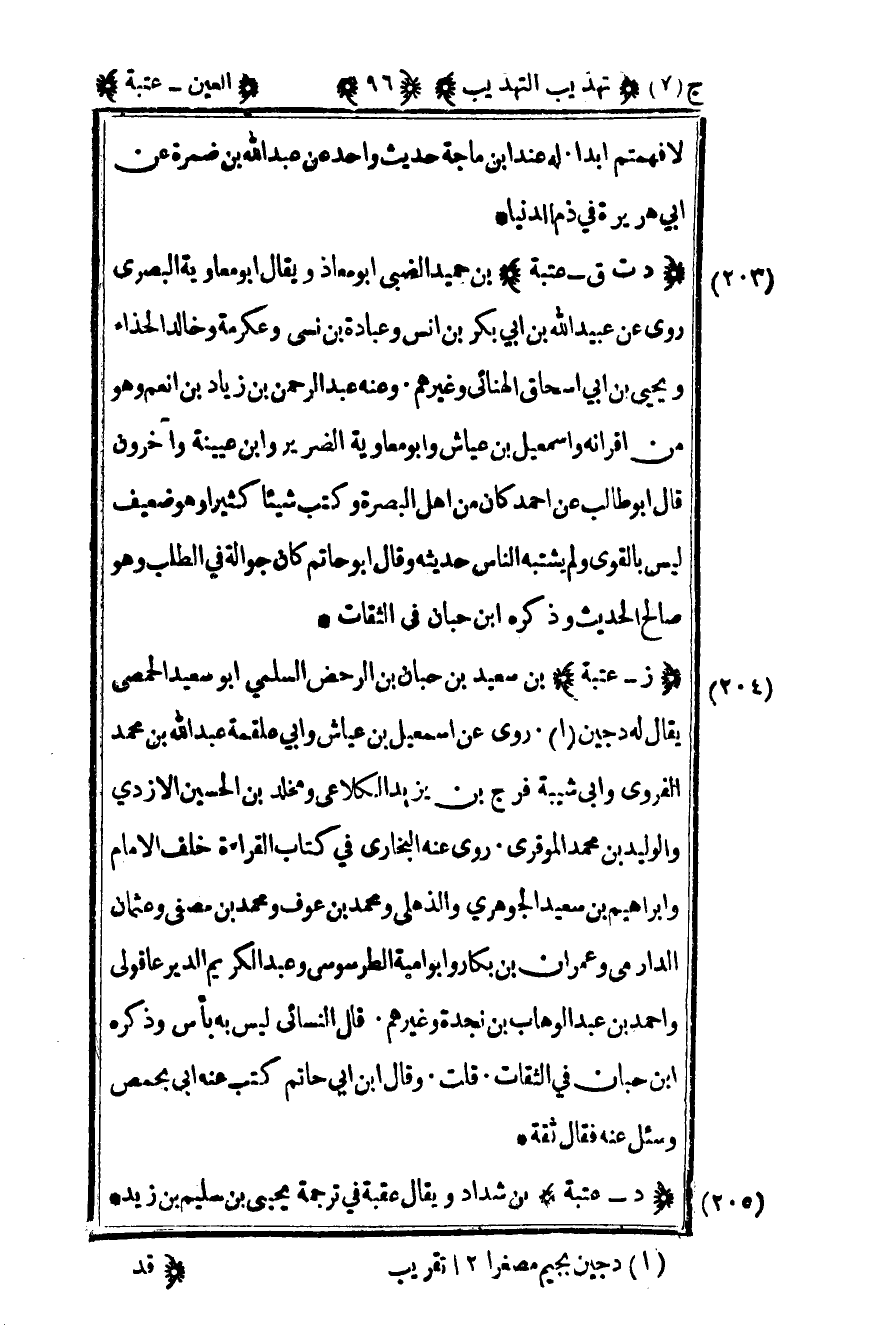 ج (٧) ﴿ تهذيب التهذيب ﴾ ﴿ ٩٦ ﴾ ﴿ العين ـ عتبة ﴾
لا فهمتم ابدا · له عند ابن ماجة حديث واحد عن عبد الله بن ضمرة عن
ابي هريرة في ذم الدنيا *
(٢٠٣) ﴿ د ت ق ـ عتبة ﴾ بن حميد الضبي ابو معاذ ويقال ابو معاوية البصرى
روى عن عبيد الله بن ابي بكر بن انس وعبادة بن نسى وعكرمة وخالد الحذاء
ويحيى بن ابي اسحاق الهنائى وغيرهم · وعنه عبد الرحمن بن زياد بن انعم وهو
من اقرانه واسمعيل بن عياش وابو معاوية الضرير وابن عيينة وآخرون
قال ابو طالب عن احمد كان من اهل البصرة وكتب شيئا كثيرا وهو ضعيف
ليس بالقوى ولم يشتبه الناس حديثه وقال ابو حاتم كان جوالة في الطلب وهو
صالح الحديث وذكره ابن حبان فى الثقات *
(٢٠٤) ﴿ ز ـ عتبة ﴾ بن سعيد بن حبان بن الرحض السلمي ابو سعيد الحمصى
يقال له دجين (١) · روى عن اسمعيل بن عياش وابي علقمة عبد الله بن محمد
الفروى وابى شيبة فرج بن يزيد الكلاعى ومخلد بن الحسين الازدي
والوليد بن محمد الموقرى · روى عنه البخارى في كتاب القراءة خلف الامام
وابراهيم بن سعيد الجوهري والذهلى ومحمد بن عوف ومحمد بن مصفى وعثمان
الدارمى وعمران بن بكار وابو امية الطرسوسى وعبد الكريم الديرعاقولى
واحمد بن عبد الوهاب بن نجدة وغيرهم · قال النسائى ليس به بأس وذكره
ابن حبان في الثقات · قلت · وقال ابن ابي حاتم كتب عنه ابي بحمص
وسئل عنه فقال ثقة *
(٢٠٥) ﴿ د ـ عتبة ﴾ بن شداد ويقال عقبة في ترجمة يحيى بن سليم بن زيد *
(١) دجين بجيم مصغرا ١٢ تقريب ﴿ قد